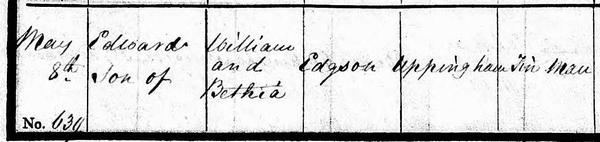 May Edward William
and Edgson Uppingham Tin Man
8th Son of Bethia
No. 630